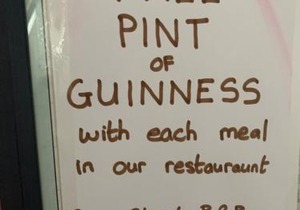 FREE
PINT
OF
GUINNESS
with each meal
in our restauraunt